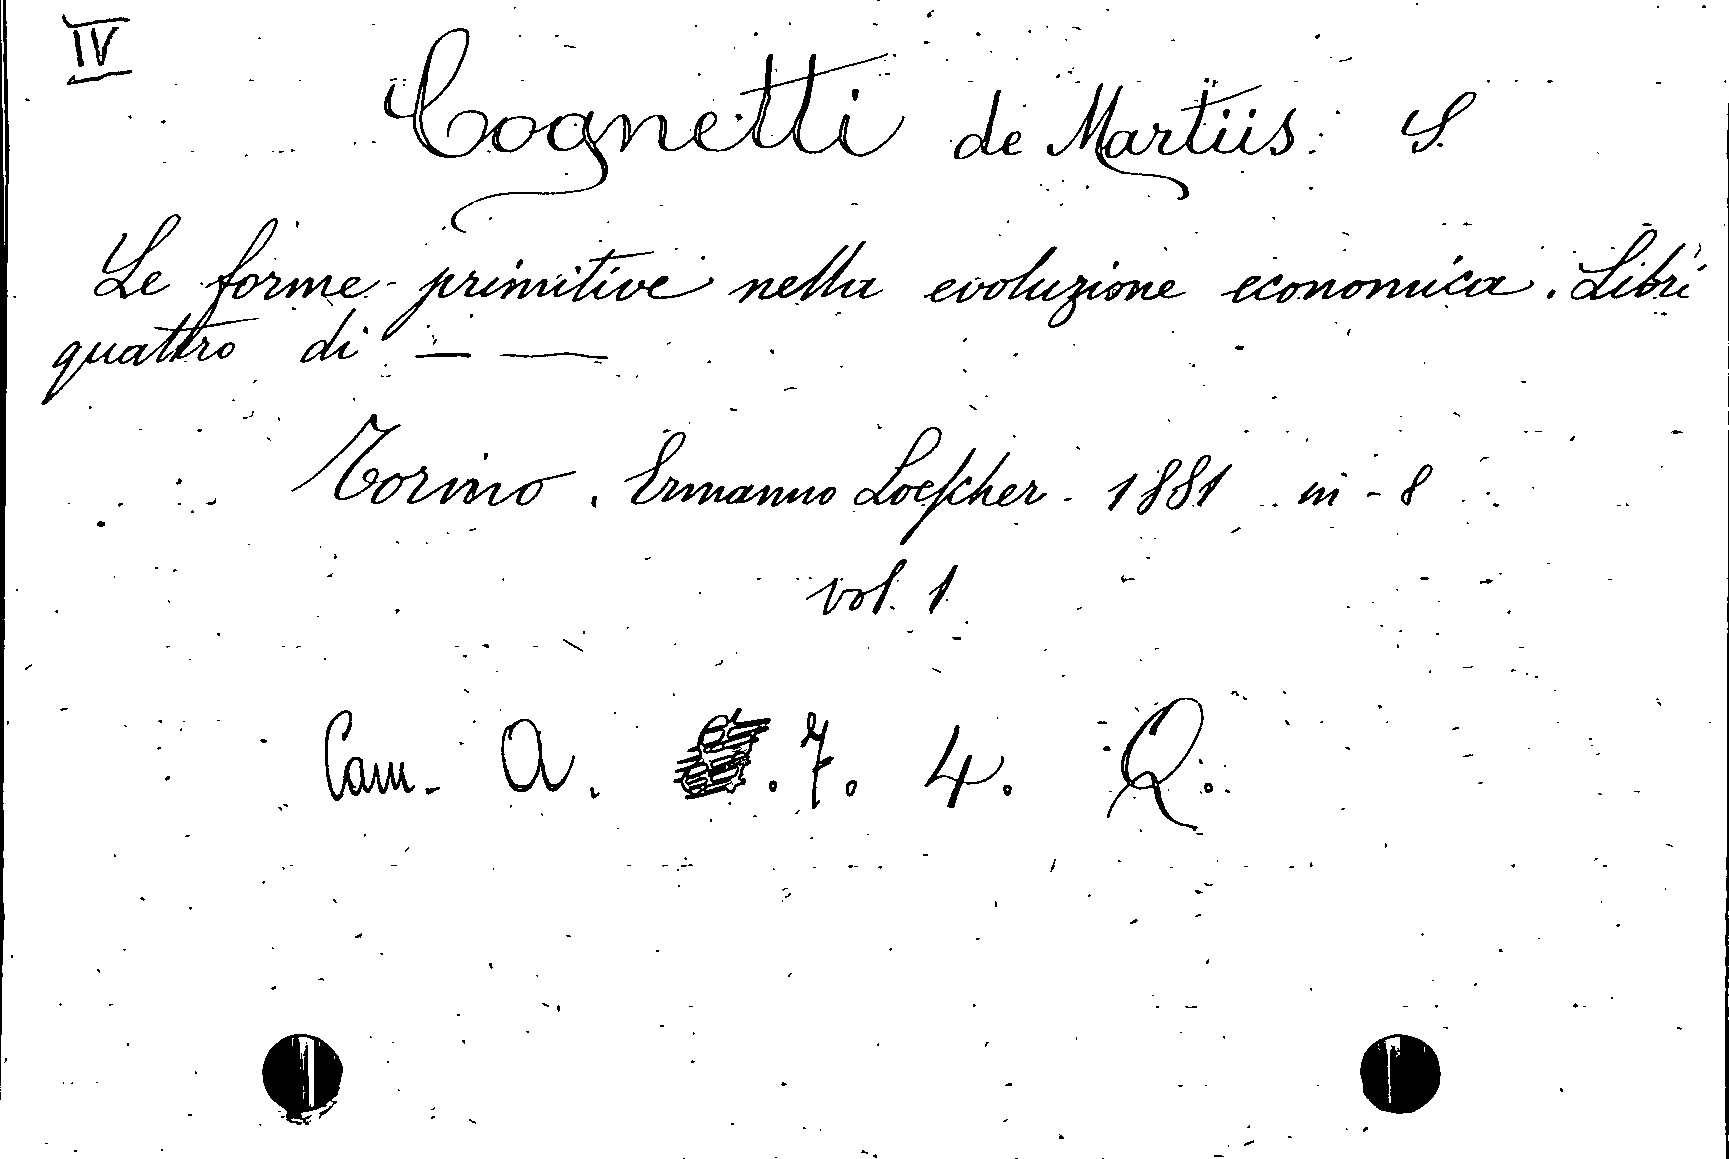 IV
Cognetti de Martiis. S.
Le forme primitive nella evoluzione economica. Libri
quattro di — —
Torino. Ermanno Loescher. 1881 in-8
vol. 1
Cam. A. . 7. 4. Q.